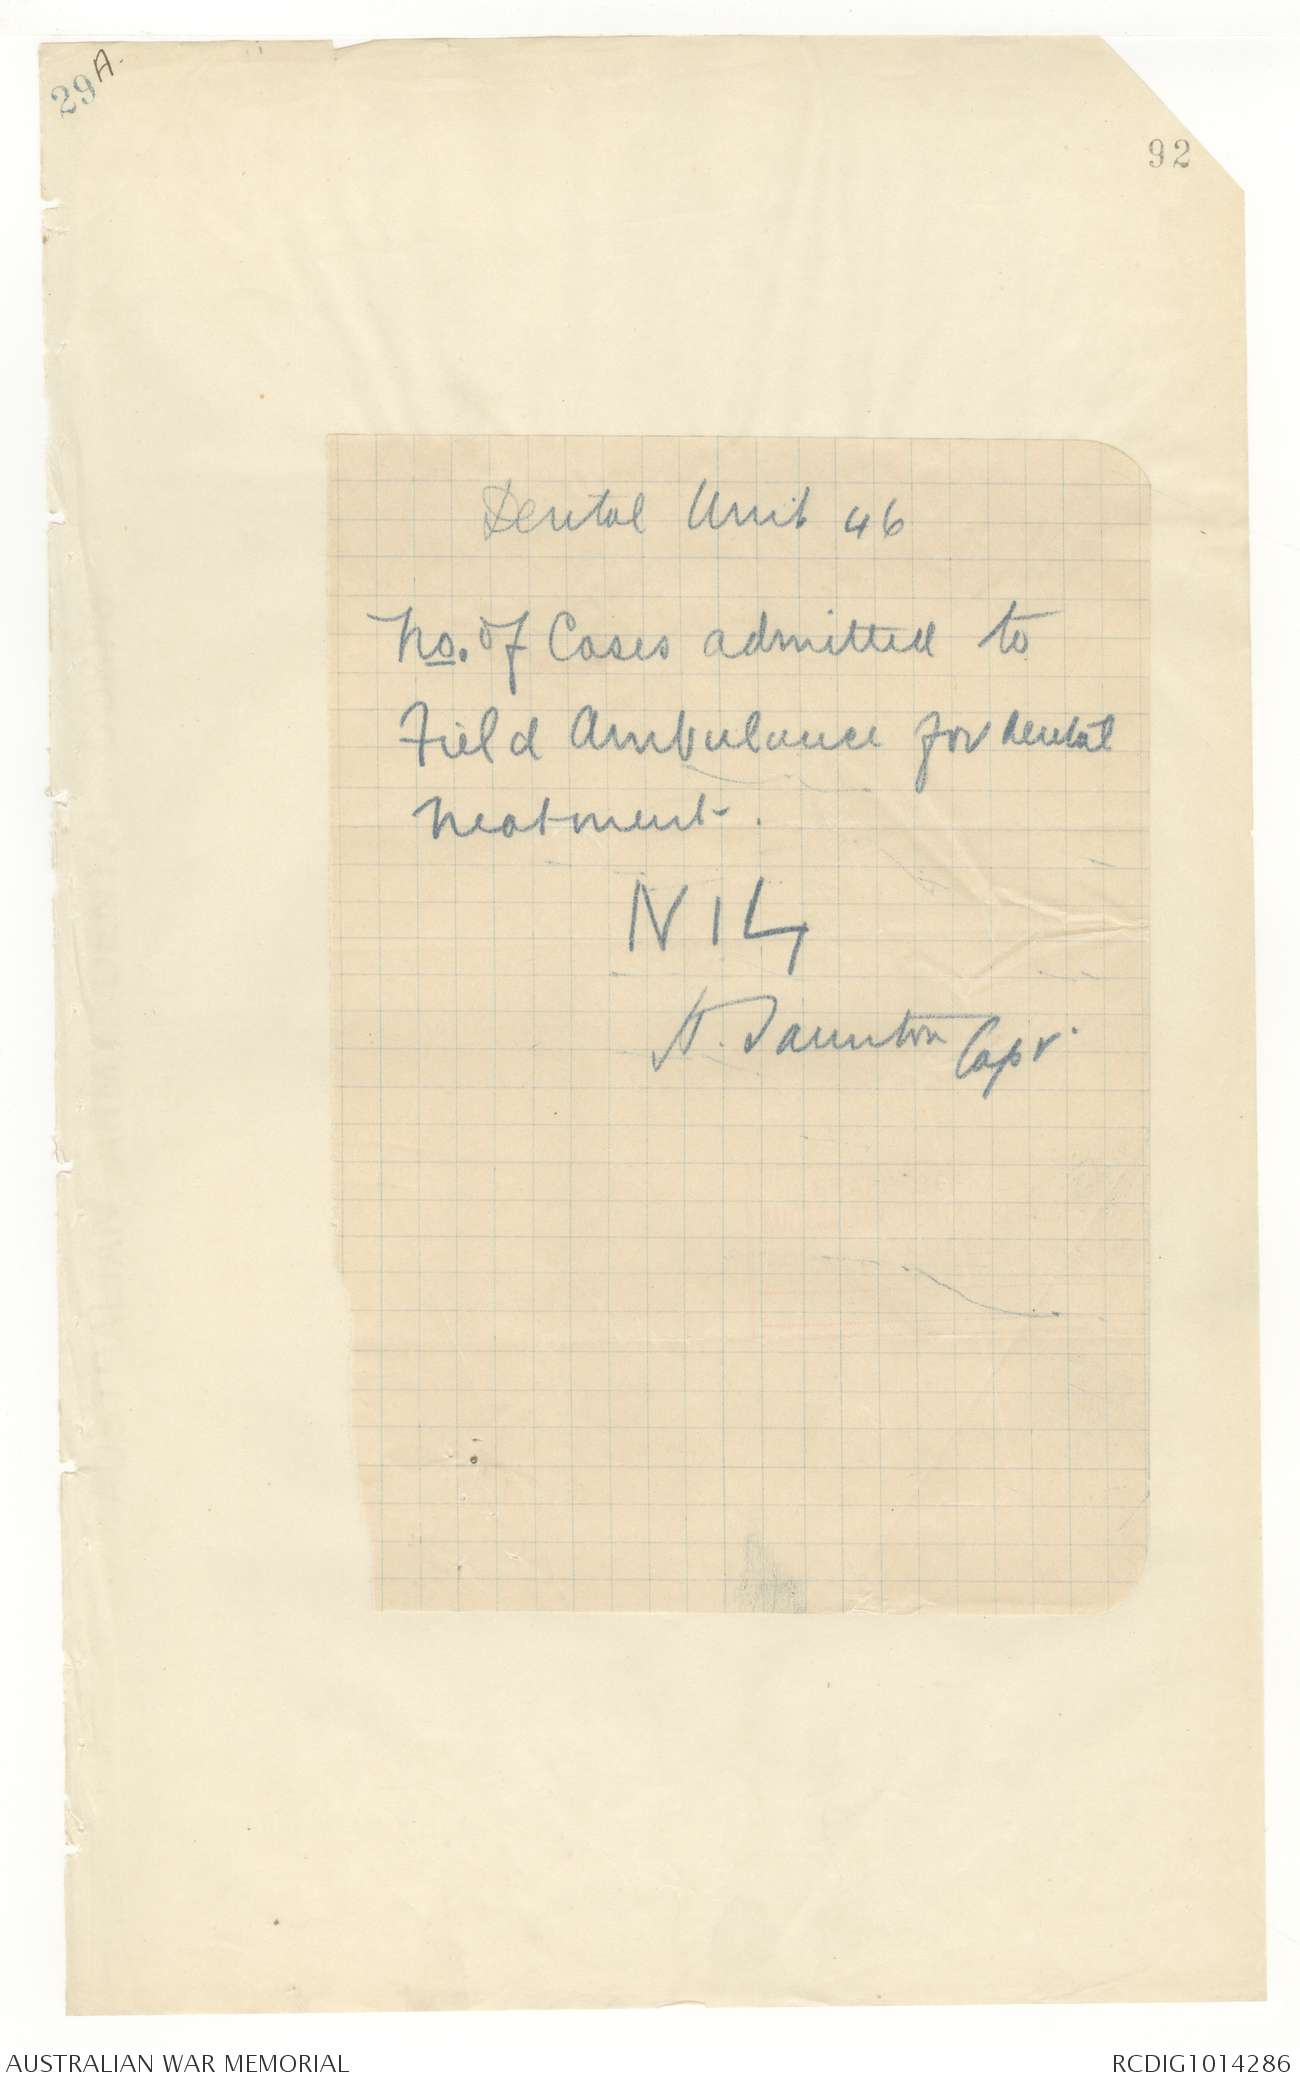 29A.
92
Dental Unit 46
No. of Cases admitted to
Field Ambulance for dental
treatment.
NIL
H. Taunton Capt.
AUSTRALIAN WAR MEMORIAL
RCDIG1014286